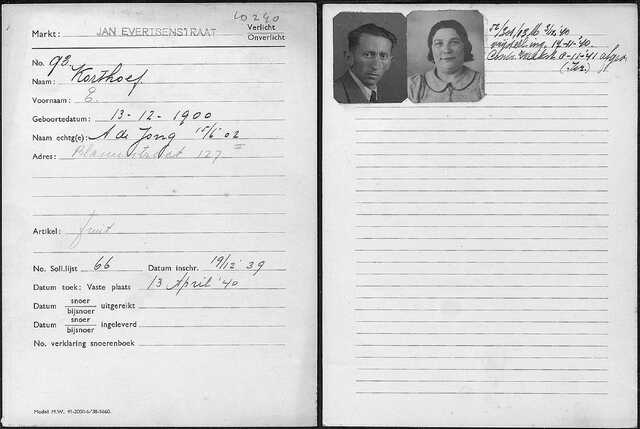 10290
Markt: JAN EVERTSENSTRAAT Verlicht
Onverlicht
No. 93.
Naam: Korthoef
Voornaam: E.
Geboortedatum: 13-12-1900
Naam echtg(e): A de Jong 15/6 02
Adres: 127 II
Artikel: fruit
No. Soll.lijst 66 Datum inschr. 19/12 '39
Datum toek: Vaste plaats 13 April '40
Datum snoer
bijsnoer uitgereikt
Datum snoer
bijsnoer ingeleverd
No. verklaring snoerenboek
Model M.W. 41-2000-6/'38-5660.
12-'40
19-11-'40.
11-'41 afgev.